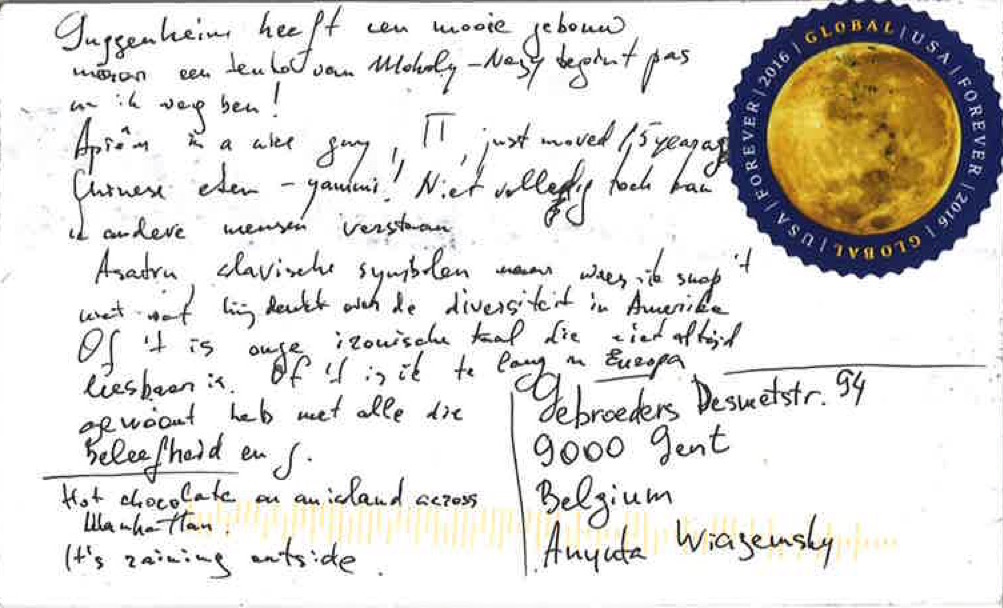 Guggenheim heeft een mooie gebouw
maar een van Moholy-Nagy begint pas
ik weg ben!
is a nice guy, IT, just moved 1,5 year ago
Chinese eten - yammi! Niet volledig toch kan
ik andere mensen verstaan
Asatru, slavische symbolen maar wees ik snap 't
niet wat hij denkt over de diversiteit in Amerika
Of 't is onze ironische taal die niet altijd
leesbaar is. Of 't is ik te lang in Europa
gewoont heb met alle die
beleefheid en
Hot chocolate on an island across
Manhattan.
It's raining outside.
Gebroeders Desmetstr. 94
9000 Gent
Belgium
Anyuta Wiazemsky
GLOBAL | USA | FOREVER | 2016 | GLOBAL | USA | FOREVER | 2016